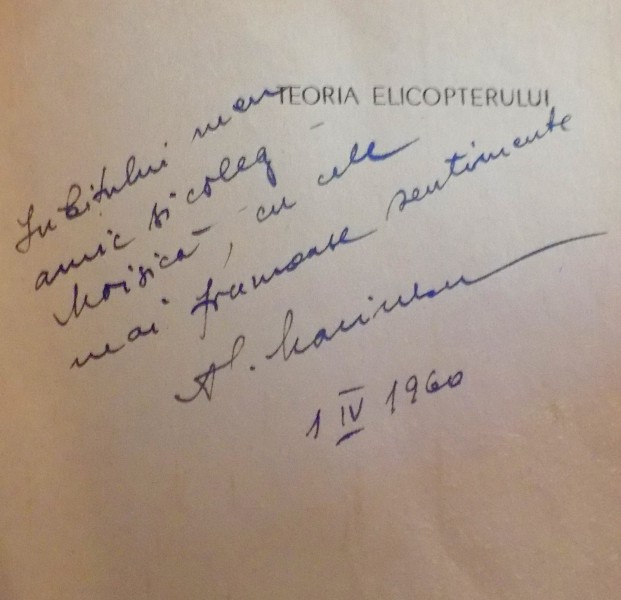 TEORIA ELICOPTERULUI
Iubitului meu
amic și coleg -
Moisică, cu cele
mai frumoase sentimente
Al. Marinescu
1 IV 1960